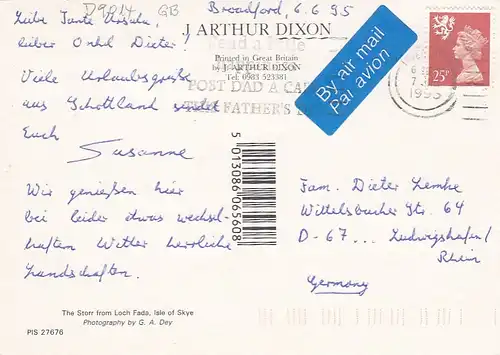 D9014 GB
Broadford, 6.6.95
Liebe Tante Ursula,
lieber Onkel Dieter!
Viele Urlaubsgrüße
aus Schottland sendet
Euch
Susanne
Wir genießen hier
bei leider etwas wechsel-
haften Wetter herrliche
Landschaften.
The Storr from Loch Fada, Isle of Skye
Photography by G. A. Dey
PIS 27676
J. ARTHUR DIXON
Printed in Great Britain
by J. ARTHUR DIXON
Tel. 0983 523381
POST DAD A CARD
THIS FATHER'S DAY
5 013086 065608
By air mail
Par avion
25P
1995
Fam. Dieter Lemke
Wittelsbacher Str. 64
D-67... Ludwigshafen/
Rhein
Germany